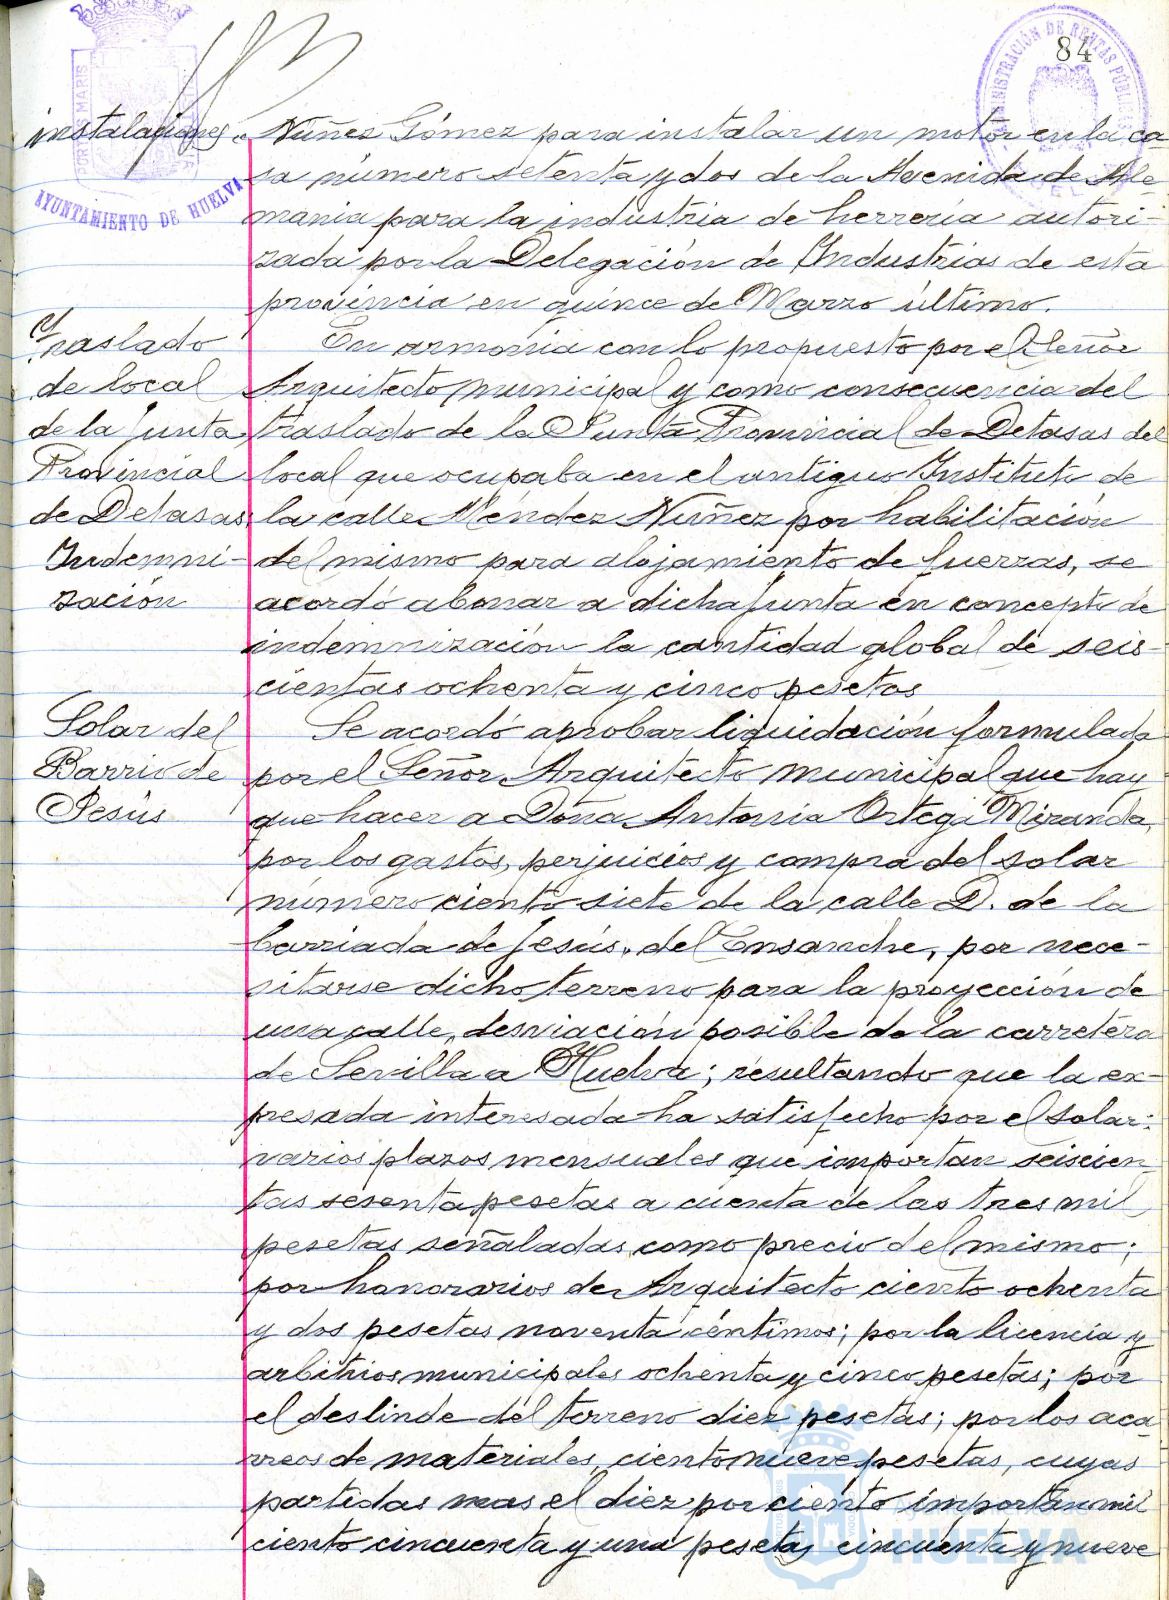 84
AYUNTAMIENTO DE HUELVA
instalaciones.
Nuñez Gómez para instalar un motor en la ca-
sa número setenta y dos de la Avenida de Ale
mania para la industria de herrería autori-
zada por la Delegación de Industrias de esta
provincia en quince de Marzo último.
Traslado
de local
de la Junta
Provincial
de Detasas
Indemni-
zación
En armonía con lo propuesto por el Señor
Arquitecto municipal y como consecuencia del
traslado de la Junta Provincial de Detasas del
local que ocupaba en el antiguo Instituto de
la calle Méndez Nuñez por habilitación
del mismo para alojamiento de fuerzas, se
acordó abonar a dicha Junta en concepto de
indemnización la cantidad global de seis-
cientas ochenta y cinco pesetas
Solar del
Barrio de
Jesús
Se acordó aprobar liquidación formulada
por el Señor Arquitecto municipal que hay
que hacer a Doña Antonia Ortega Miranda,
por los gastos, perjuicios y compra del solar
número ciento siete de la calle D. de la
barriada de Jesús, del Ensanche, por nece-
sitarse dicho terreno para la proyección de
una calle, desviación posible de la carretera
de Sevilla a Huelva; resultando que la ex-
presada interesada ha satisfecho por el solar:
varios plazos mensuales que importan seiscien
tas sesenta pesetas a cuenta de las tres mil
pesetas señaladas como precio del mismo;
por honorarios de Arquitecto ciento ochenta
y dos pesetas noventa céntimos; por la licencia y
arbitrios municipales ochenta y cinco pesetas; por
el deslinde del terreno diez pesetas; por los aca-
rreos de materiales, ciento nueve pesetas, cuyas
partidas mas el diez por ciento importan mil
ciento cincuenta y una pesetas cincuenta y nueve
Ayuntamiento de
HUELVA